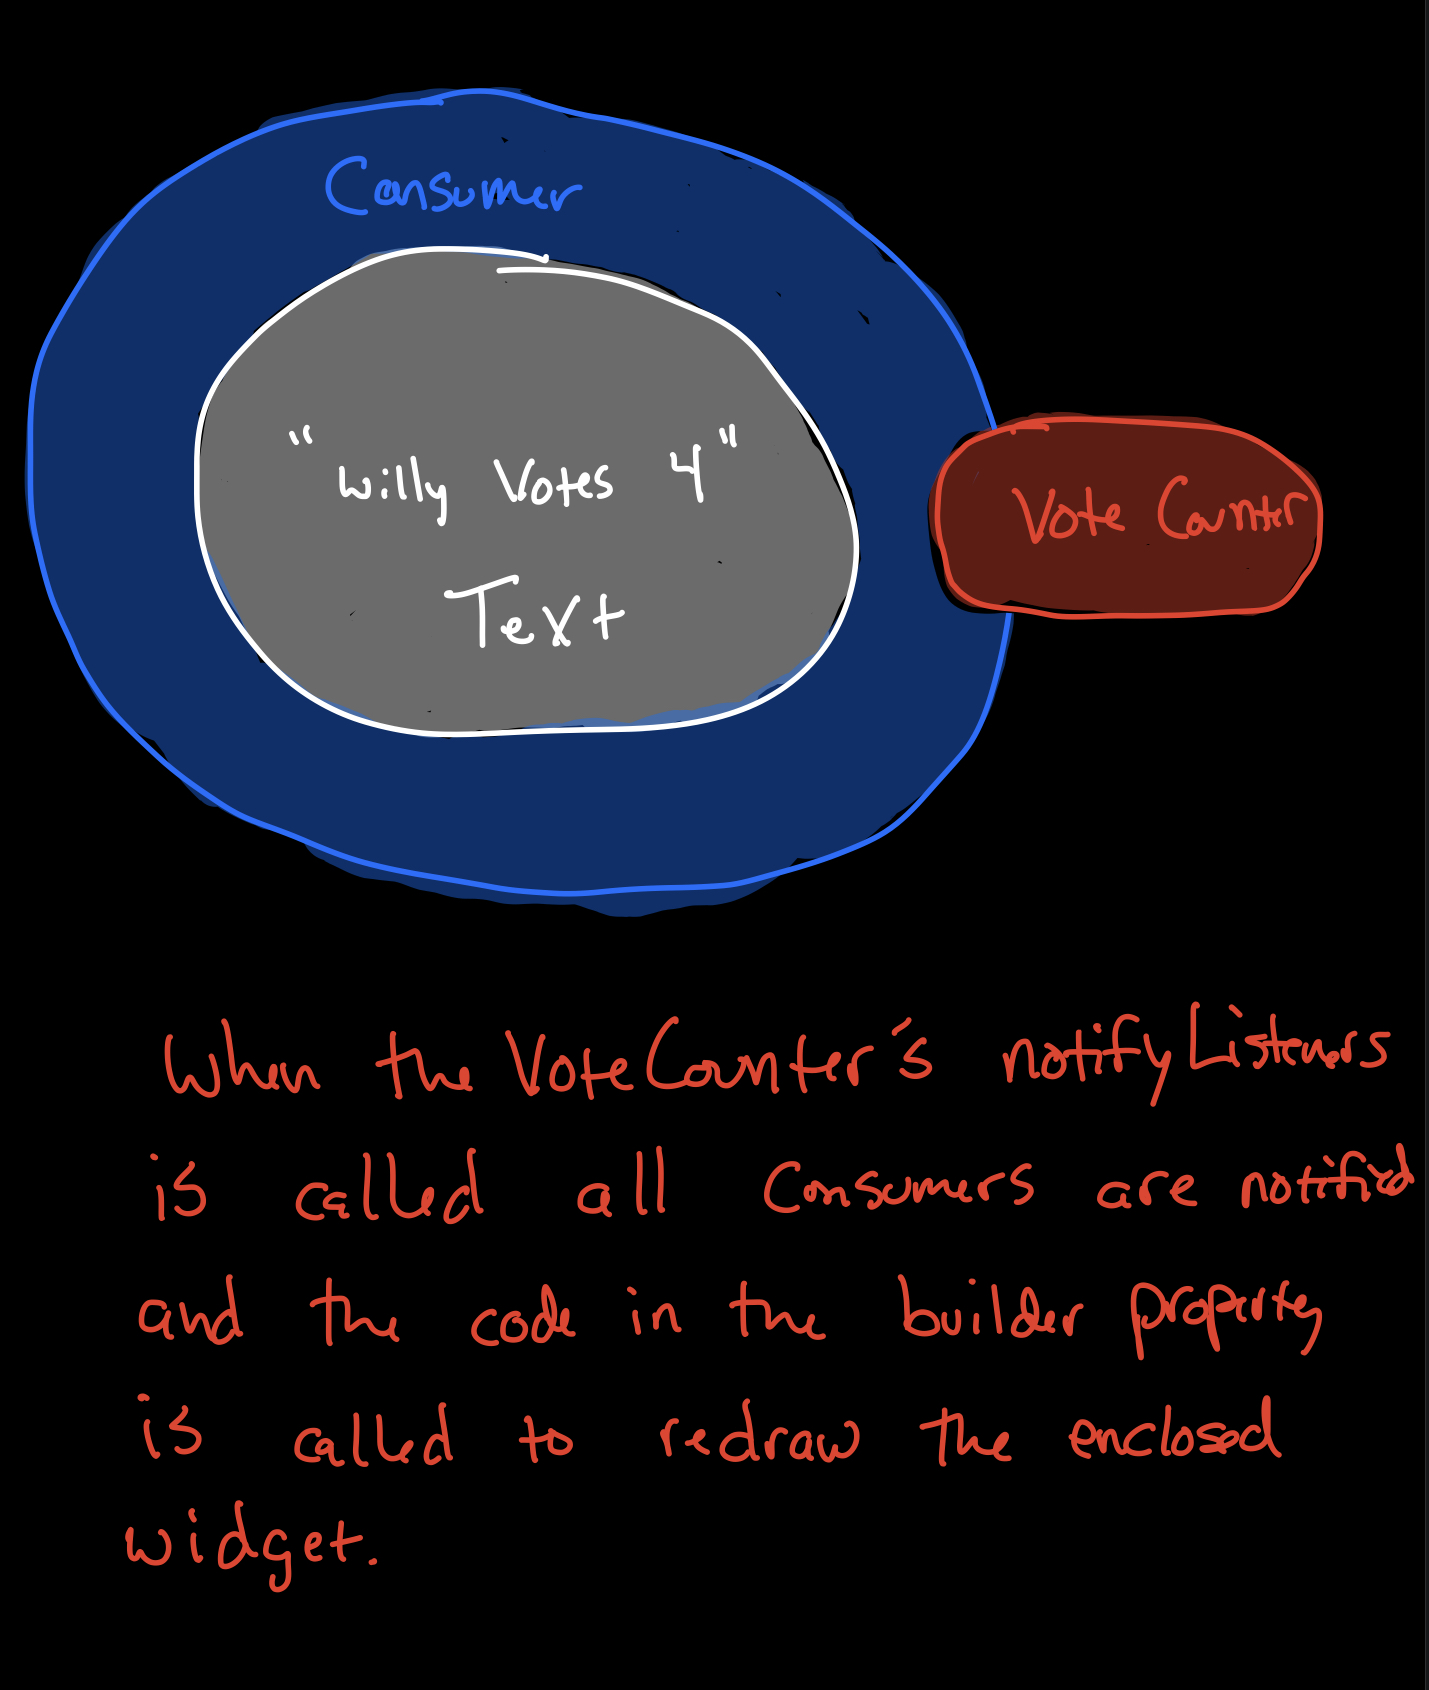 Consumer
"Willy Votes 4"
Text
Vote Counter
When the VoteCounter's notifyListeners
is called all Consumers are notified
and the code in the builder property
is called to redraw the enclosed
widget.